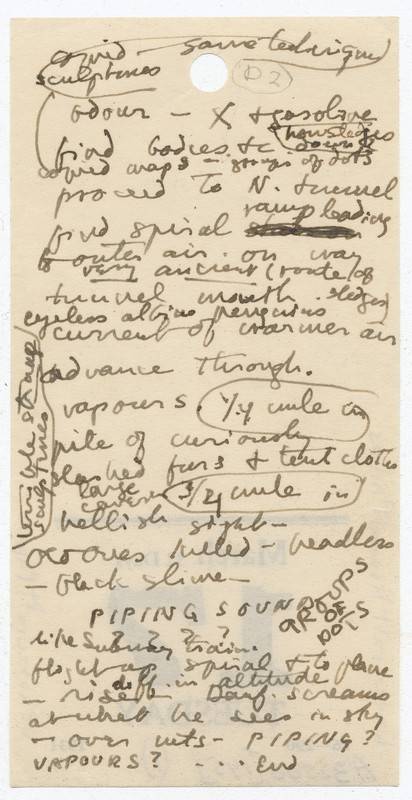 squid — same technique
sculptures
D 2
odour — X + gasolene
how sledges
find bodies &c. down
carved maps — groups of dots
proceed to N. tunnel
ramp leading
find spiral
to outer air. on way
very ancient (route of
tunnel mouth. sledges)
eyeless albino penguins
current of warmer air
advance through.
terrible strange
sculptures
vapours. 1/4 mile in
pile of curiously
slashed furs & tent cloths
large
cavern 3/4 mile in
hellish sight —
Old Ones killed — headless
— black slime —
PIPING SOUND
GROUPS
OF
DOTS
like Subway train.
? ? ? ?
flight up spiral & to plane
diff. in altitude
— rise — Danf. screams
at what he sees in sky
— over mts — PIPING?
VAPOURS? . . . End